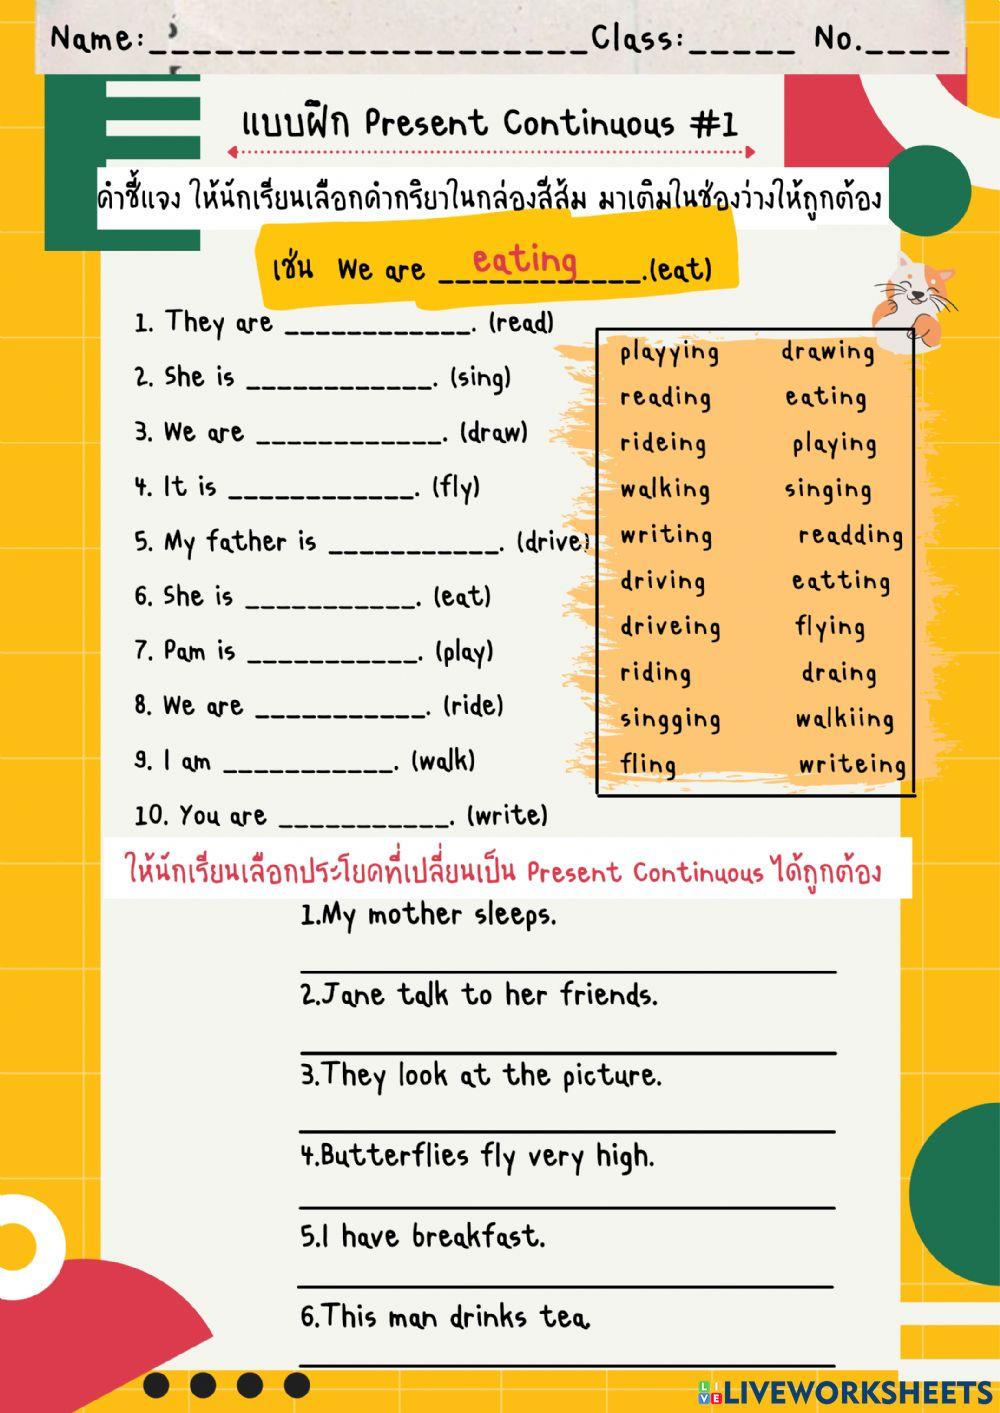 Name:______________________Class:_____ No.____
แบบฝึก Present Continuous #1
คำชี้แจง ให้นักเรียนเลือกคำกริยาในกล่องสีส้ม มาเติมในช่องว่างให้ถูกต้อง
เช่น We are ____eating____.(eat)
1. They are _____________. (read)
2. She is _____________. (sing)
3. We are _____________. (draw)
4. It is _____________. (fly)
5. My father is ____________. (drive)
6. She is ____________. (eat)
7. Pam is ____________. (play)
8. We are ____________. (ride)
9. I am ____________. (walk)
10. You are ____________. (write)
playying drawing
reading eating
rideing playing
walking singing
writing readding
driving eatting
driveing flying
riding draing
singging walkiing
fling writeing
ให้นักเรียนเลือกประโยคที่เปลี่ยนเป็น Present Continuous ได้ถูกต้อง
1.My mother sleeps.
2.Jane talk to her friends.
3.They look at the picture.
4.Butterflies fly very high.
5.I have breakfast.
6.This man drinks tea.
LIVE LIVEWORKSHEETS